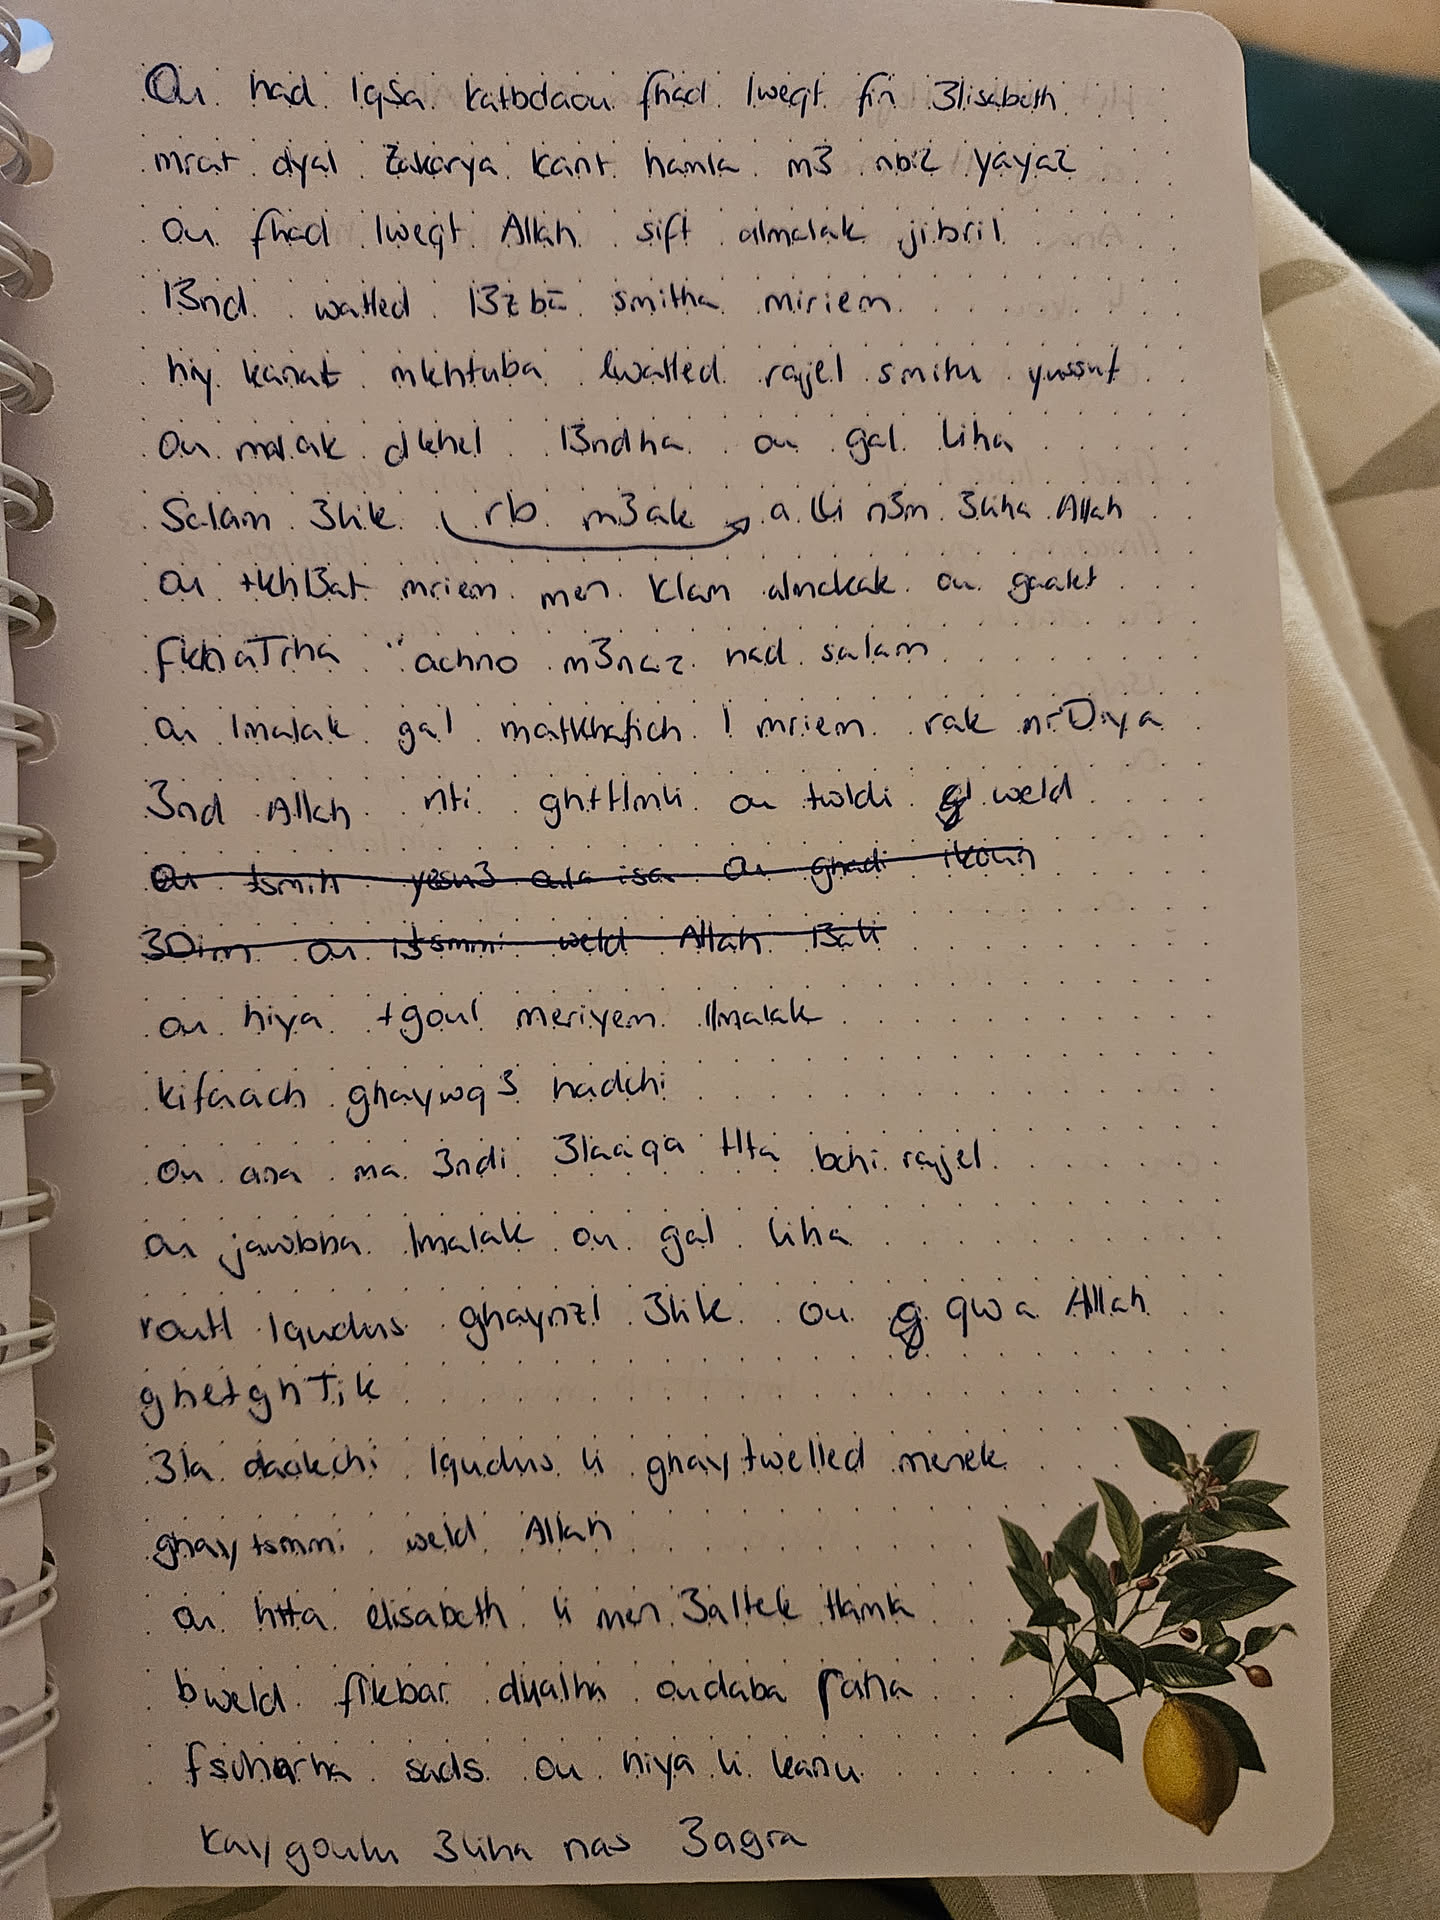 Ou had lqSa katbdaou fhad lweqt fin 3lisabeth
mrat dyal Zakarya kant hamla m3 nbi2 yaya2
ou fhad lweqt Allah sift almalak jibril
l3nd watled l3zba smitha miriem
hiy kanat mkhtuba lwatled rajel smitu yussuf
ou malak dkhel l3ndha ou gal liha
Salam 3lik (rb m3ak) a lli n3m 3liha Allah
ou tkhl3at mriem men klam almalak ou gaalet
FkhaTrha "achno m3na2 had salam
ou lmalak gal matkhafich ! mriem rak mrDiya
3nd Allah nti ghttlmli ou twldi weld
ou tsmih yesu3 aula isa ou ghadi ikoun
3Dim ou itsmmi weld Allah l3ali
ou hiya tgoul meriyem llmalak
kifaach ghaywq3 hadchi
ou ana ma 3ndi 3laaqa tlta bchi rajel
ou jawbha lmalak ou gal liha
routl lqudus ghaynzl 3lik ou qwa Allah
ghetghTik
3la daakchi lqudus li ghaytwelled menek
ghaytsmmi weld Allah
ou htta elisabeth li men 3altek tlamla
bweld flkbar dyalha oudaba raha
fshharha sads ou hiya li kanu
kaygoulu 3liha nas 3agra